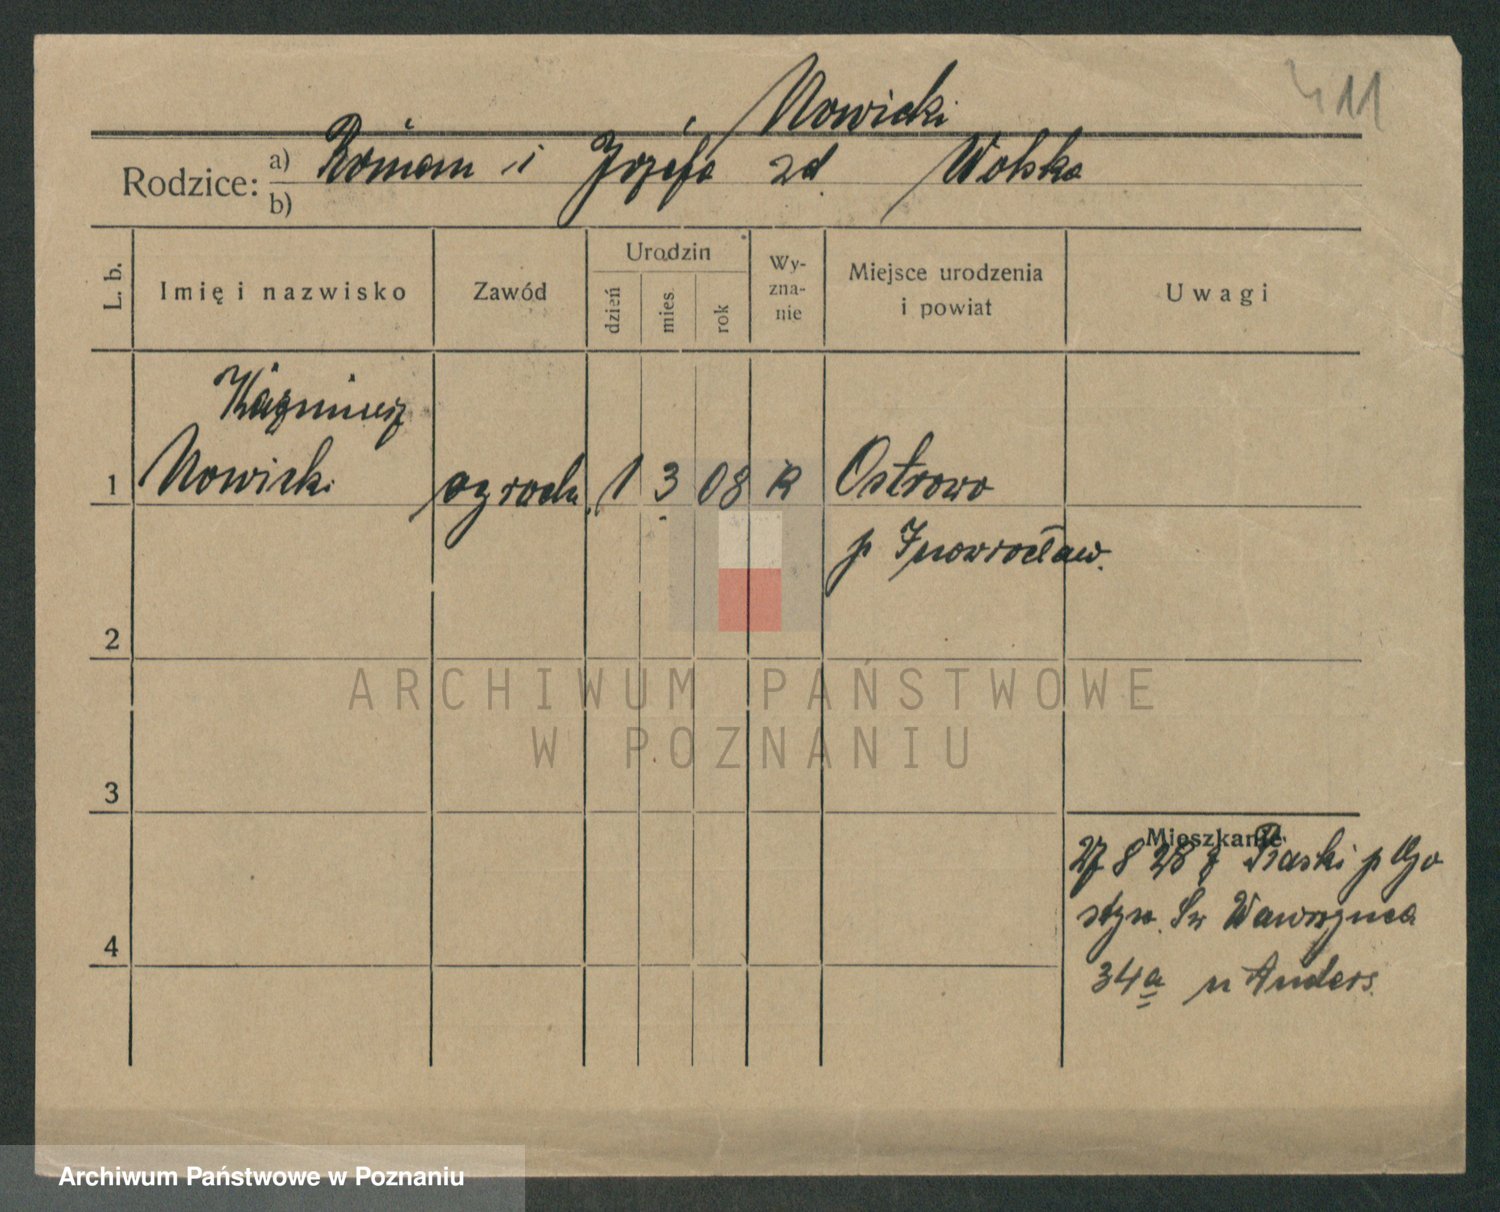 411
Nowicki
Rodzice: a) Roman i Józefa zd. Wolska
b)
L. b.
Imię i nazwisko
Zawód
Urodzin
dzień
mies.
rok
Wy-
zna-
nie
Miejsce urodzenia
i powiat
Uwagi
Kazimierz
1 Nowicki ogrodn. 1 3 08 R Ostrowo
p Inowrocław.
2
ARCHIWUM PAŃSTWOWE
W POZNANIU
3
Mieszkanie
27 8 28 z Piaski p Go
styn. Św Wawrzynca
4
34a u Anders.
Archiwum Państwowe w Poznaniu